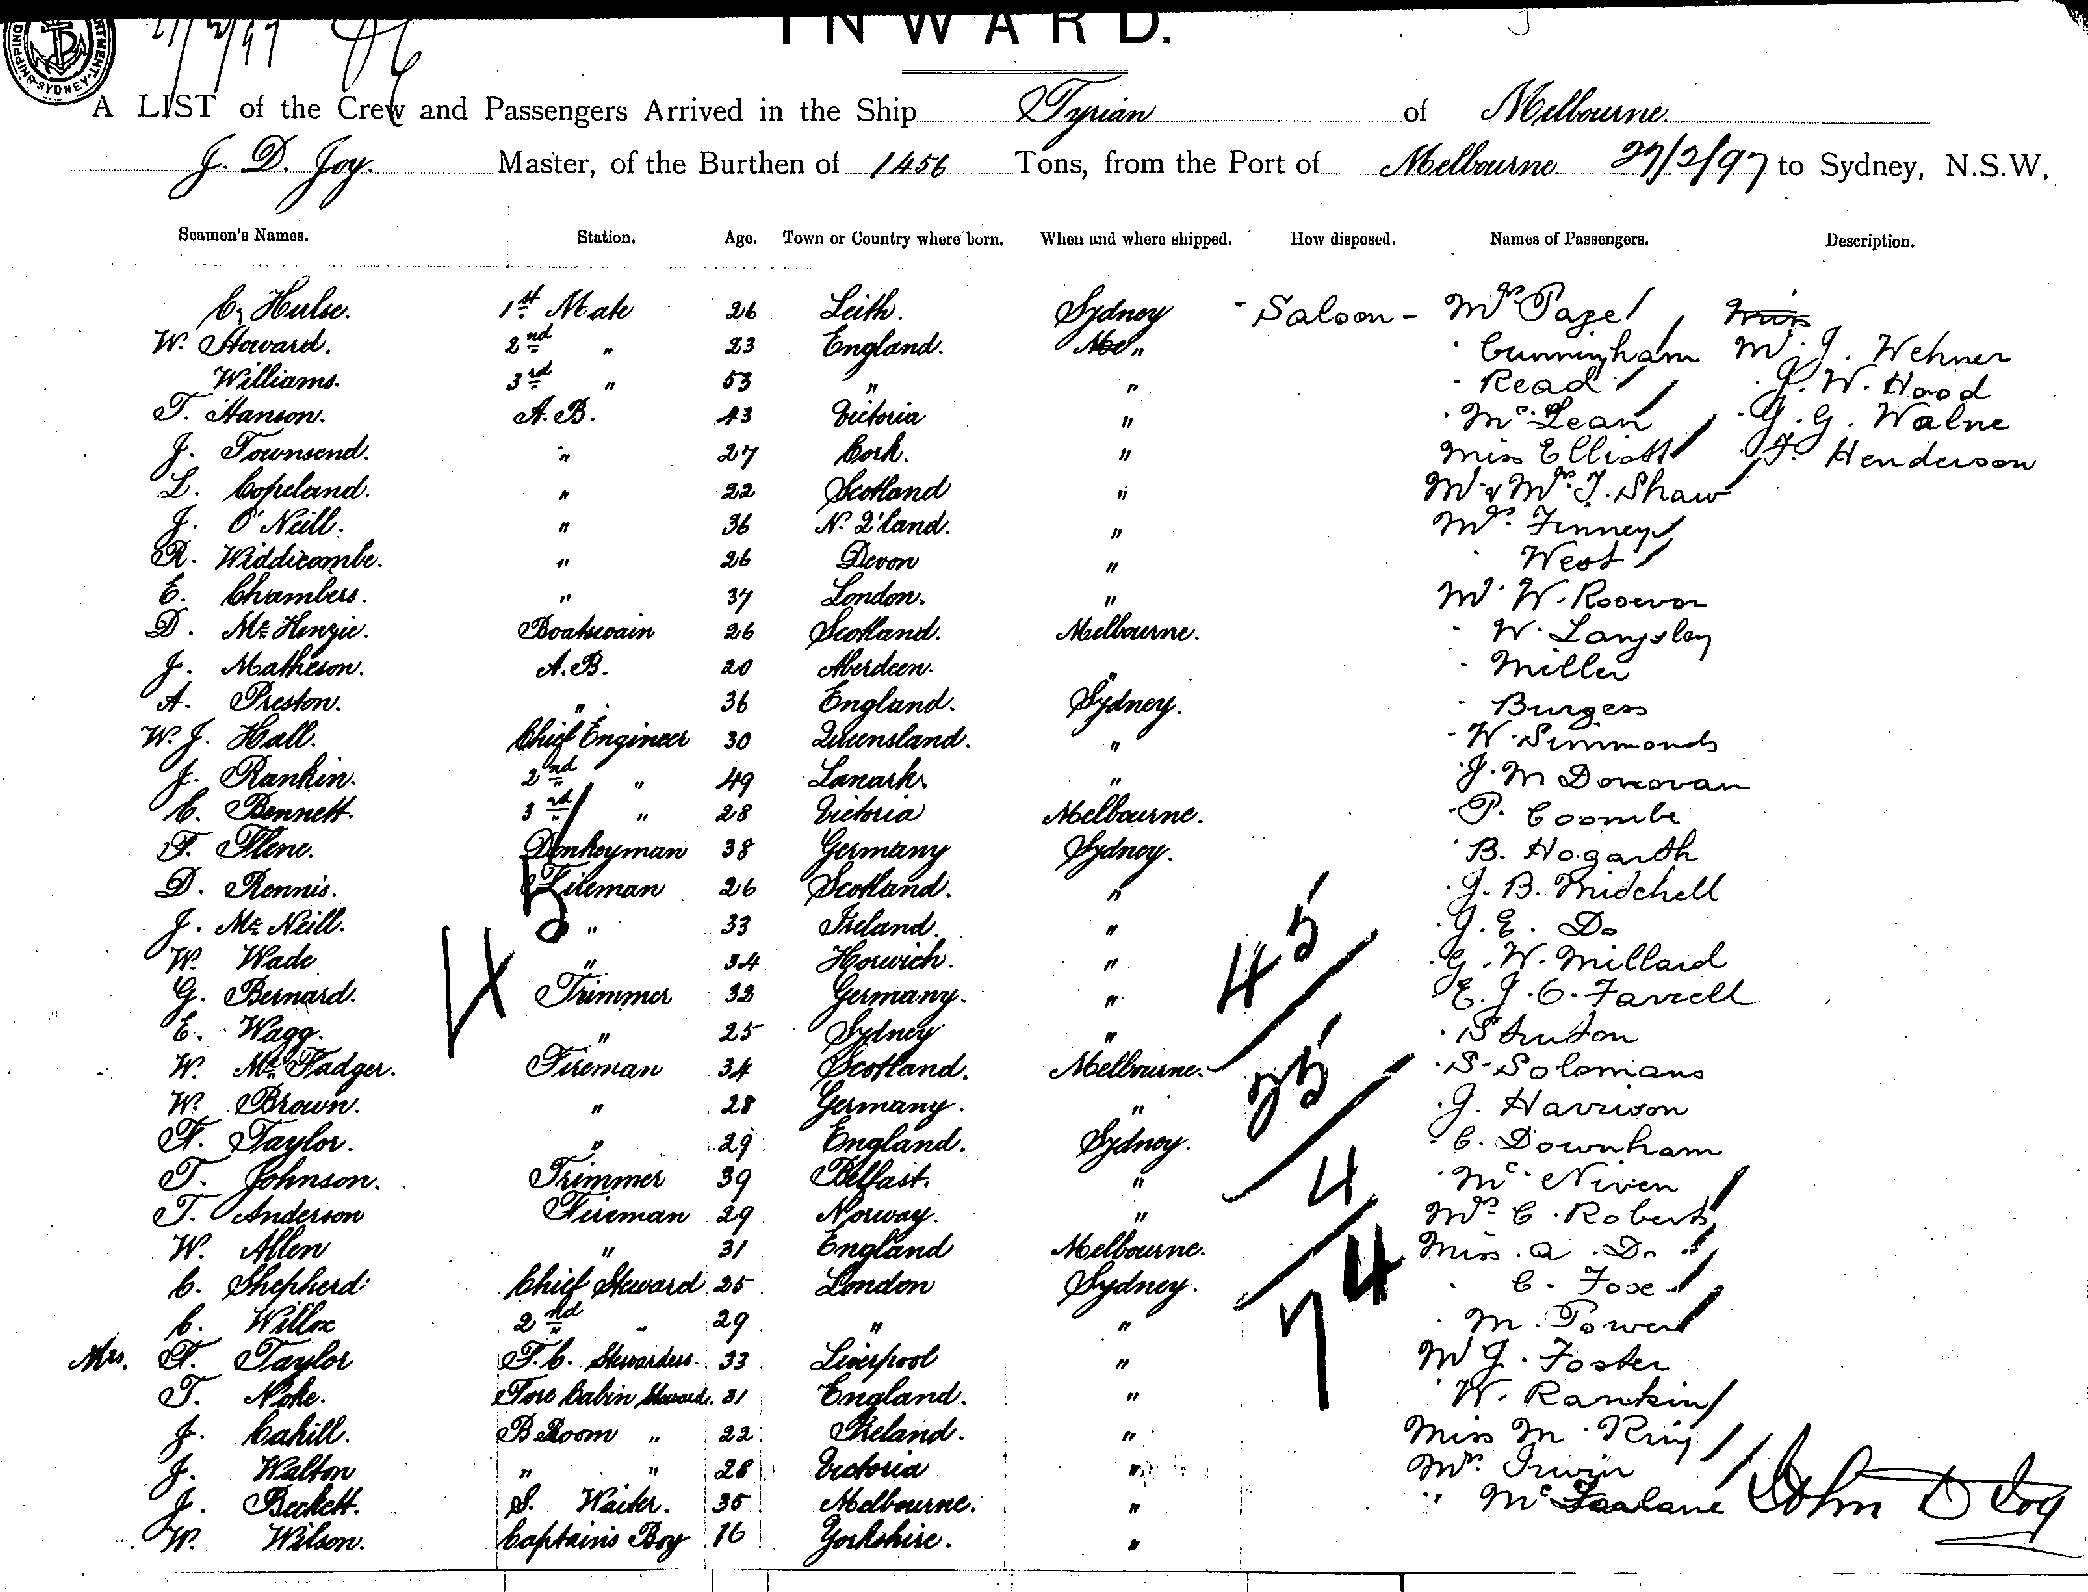 INWARD.
27/2/97
A LIST of the Crew and Passengers Arrived in the Ship Tyrian of Melbourne
J. D. Joy. Master, of the Burthen of 1456 Tons, from the Port of Melbourne 27/2/97 to Sydney, N.S.W.
Seamen's Names. Station. Age. Town or Country where born. When and where shipped. How disposed. Names of Passengers. Description.
C. Hulse. 1st Mate 26 Leith. Sydney - Saloon - Mrs Page
W. Howard. 2nd " 23 England. " " Cunningham Mr. J. Wehner
Williams. 3rd " 53 " " " Read " J. W. Hood
T. Hanson. A.B. 43 Victoria " " McLean " G. G. Walne
J. Townsend. " 27 Cork. " Miss Elliott " F. Henderson
L. Copeland. " 22 Scotland " Mr & Mrs T. Shaw
J. O'Neill. " 36 N. Z'land. " Mrs Finney
R. Widdicombe. " 26 Devon " " West
E. Chambers. " 37 London. " Mr. W. Rosevor
D. McKenzie. Boatswain 26 Scotland. Melbourne. " W. Langsley
J. Matheson. A.B. 20 Aberdeen. " " Miller
A. Preston. " 36 England. Sydney. " Burgess
W. J. Hall. Chief Engineer 30 Queensland. " " W. Simmonds
J. Rankin. 2nd " 49 Lanark. " J. M Donovan
C. Bennett. 3rd " 28 Victoria Melbourne. " P. Coombe
F. Thene. Donkeyman 38 Germany Sydney. " B. Hogarth
D. Rennis. Fireman 26 Scotland. " " J. B. Midchell
J. McNeill. " 33 Ireland. " " J. E. Do
W. Wade " 34 Horwich. " " G. W. Millard
G. Bernard. Trimmer 32 Germany. " " E. J. C. Farrell
E. Wagg. " 25 Sydney "
W. McFadger. Fireman 34 Scotland. Melbourne. " S. Solomans
W. Brown. " 28 Germany. " " J. Harrison
F. Taylor. " 29 England. Sydney. " C. Downham
T. Johnson. Trimmer 39 Belfast. " " McNiven
T. Anderson Fireman 29 Norway. " Mrs C. Roberts
W. Allen " 31 England Melbourne. Miss. A. Do
C. Shepherd Chief Steward 25 London Sydney. " C. Foxe
C. Willox 2nd " 29 " " " M. Power
Mrs. F. Taylor F.C. Stewardess. 33 Liverpool " Mr J. Foster
T. Noke. Fore Cabin Steward. 31 England. " " W. Rankin
J. Cahill. B Room " 22 Ireland. " Miss M. King
J. Walton " " 28 Victoria " Mrs. Irwin
J. Beckett. S. Waiter. 35 Melbourne. " " McFarlane
W. Wilson. Captains Boy 16 Yorkshire. "
45
45
25
4
74
John D Joy